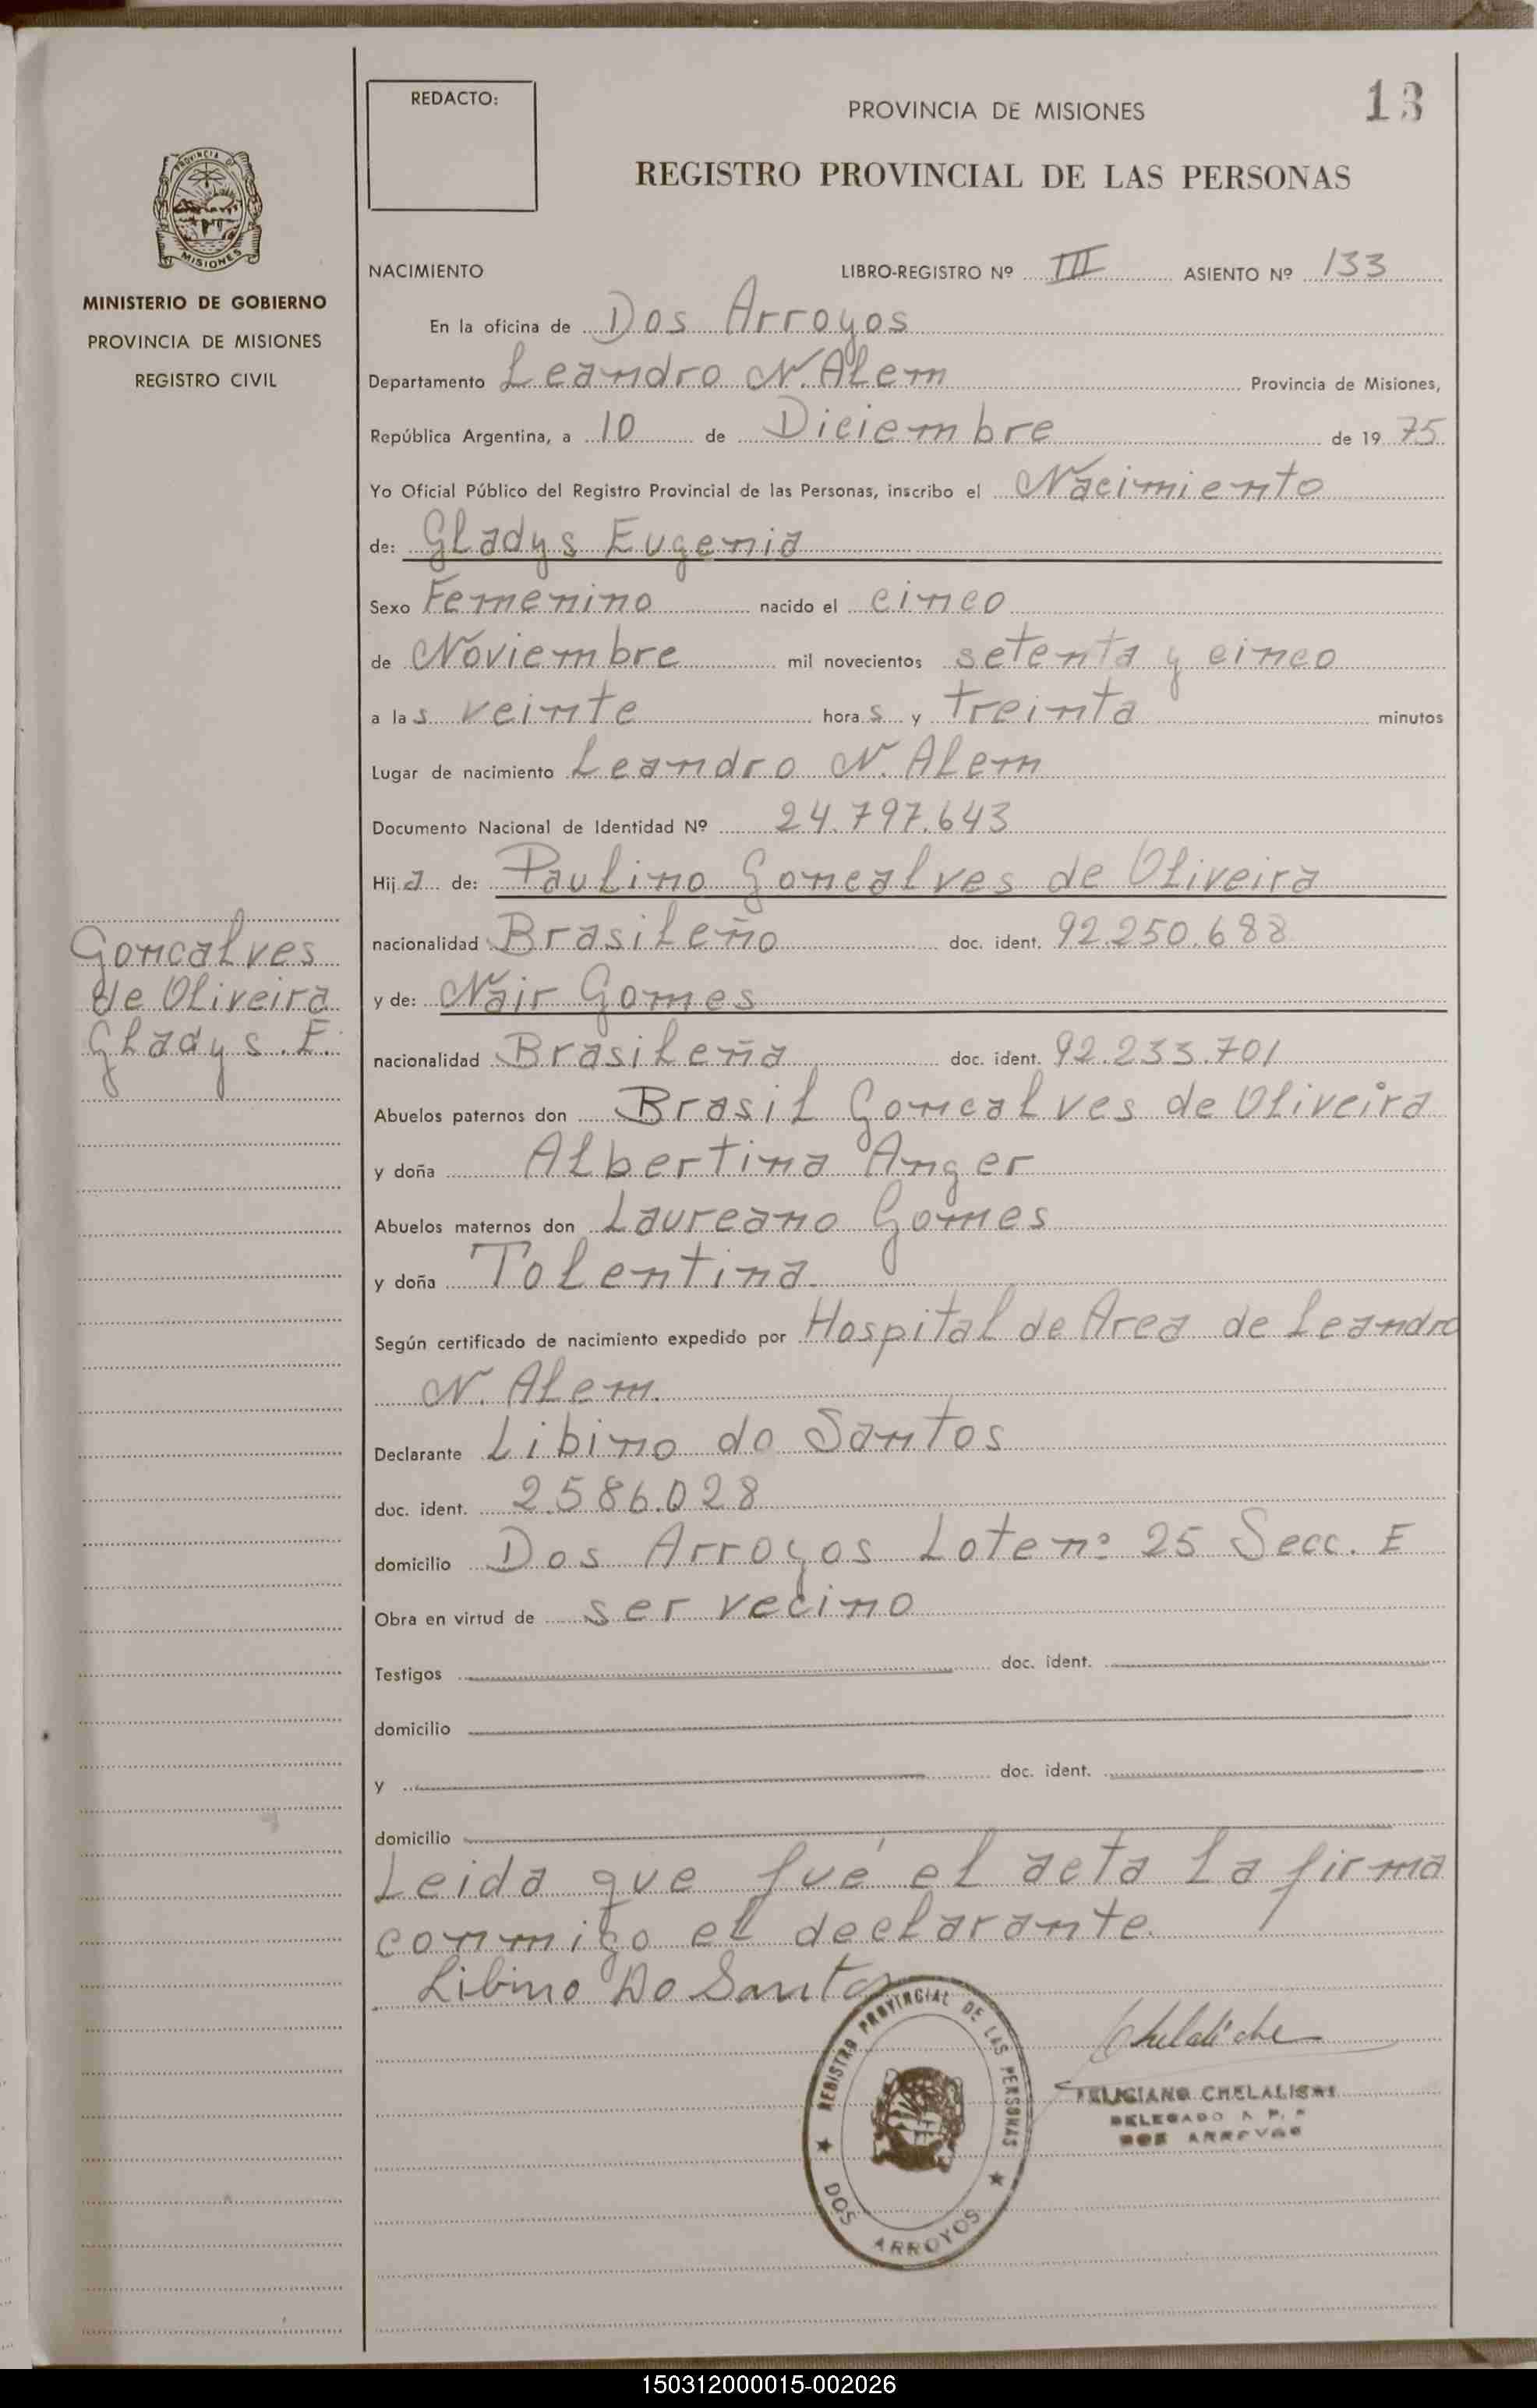 REDACTO:
PROVINCIA DE MISIONES
13
REGISTRO PROVINCIAL DE LAS PERSONAS
MISIONES
MINISTERIO DE GOBIERNO
PROVINCIA DE MISIONES
REGISTRO CIVIL
NACIMIENTO LIBRO-REGISTRO Nº III ASIENTO Nº 133
En la oficina de Dos Arroyos
Departamento Leandro N. Alem Provincia de Misiones,
República Argentina, a 10 de Diciembre de 1975
Yo Oficial Público del Registro Provincial de las Personas, inscribo el Nacimiento
de: Gladys Eugenia
Sexo Femenino nacido el cinco
de Noviembre mil novecientos setenta y cinco
a las veinte horas y treinta minutos
Lugar de nacimiento Leandro N. Alem
Documento Nacional de Identidad Nº 24.797.643
Hija de: Paulino Goncalves de Oliveira
nacionalidad Brasileño doc. ident. 92.250.688
y de: Nair Gomes
nacionalidad Brasileña doc. ident. 92.233.701
Goncalves
de Oliveira
Gladys. E.
Abuelos paternos don Brasil Goncalves de Oliveira
y doña Albertina Anger
Abuelos maternos don Laureano Gomes
y doña Tolentina
Según certificado de nacimiento expedido por Hospital de Area de Leandro
N. Alem.
Declarante Libino do Santos
doc. ident. 2.586.028
domicilio Dos Arroyos Lote nº 25 Secc. E
Obra en virtud de ser vecino
Testigos doc. ident.
domicilio
y doc. ident.
domicilio
Leida que fué el acta la firma
conmigo el declarante.
Libino Do Santos
REGISTRO PROVINCIAL DE LAS PERSONAS
DOS ARROYOS
FELICIANO CHELALICHE
DELEGADO R. P. P.
DOS ARROYOS
150312000015-002026